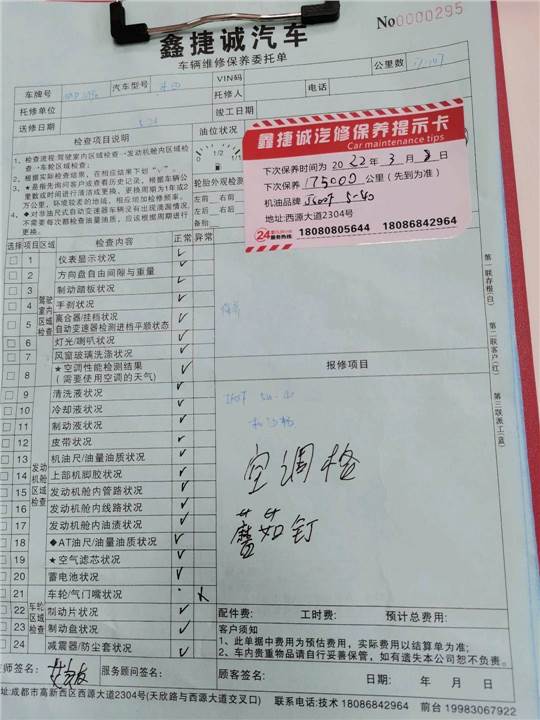 No0000295
鑫捷诚汽车
车辆维修保养委托单
车牌号
汽车型号
VIN码
公里数
托修单位
托修人
电话
送修日期
竣工日期
检查项目说明
油位状况
1/2
轮胎外观检测
左前
右前
左后
右后
备胎
1、检查流程:驾驶室内区域检查→发动机舱内区域检查→车轮区域检查;
2、根据实际检查结果,在相应结果下划“√”。
3、★是先询问客户或查看历史记录,根据车辆公里数或时间进行清洁或更换。更换周期为1年或2万公里,环境较差的地域,相应增加检修频率。
4、◆对非油尺式自动变速器车辆没有出现滴漏情况,不需要每次都检查油量油质,应该根据周期进行更换。
鑫捷诚汽修保养提示卡
Car maintenance tips
下次保养时间为2022年3月8日
下次保养175000公里(先到为准)
机油品牌 5-40
地址:西源大道2304号
24 服务热线
18080805644
18086842964
选择
项目
区域
检查内容
正常
异常
驾驶室内区域检查
1 仪表显示状况 √
2 方向盘自由间隙与重量 √
3 制动踏板状况 √
4 手刹状况 √
5 离合器/挂档状况
自动变速器检测进档平顺状态 √
6 灯光/喇叭状况 √
7 风窗玻璃洗涤状况 √
8 ★空调性能检测结果
(需要使用空调的天气) √
发动机舱区域检查
9 清洗液状况 √
10 冷却液状况 √
11 制动液状况 √
12 皮带状况 √
13 机油尺/油量油质状况 √
14 上部机脚胶状况 √
15 发动机舱内管路状况 √
16 发动机舱内线路状况 √
17 发动机舱内油渍状况 √
18 ◆AT油尺/油量油质状况 √
19 ★空气滤芯状况 √
20 蓄电池状况 √
车轮区域检查
21 车轮/气门嘴状况
22 制动片状况 √
23 制动盘状况 √
24 减震器/防尘套状况 √
报修项目
空调格
蘑茹钉
第一联存根(白)
第二联客户(红)
第三联派工(蓝)
配件费:
工时费:
预计总费用:
客户须知
1、此单据中费用为预估费用,实际费用以结算单为准;
2、车内贵重物品请自行妥善保管,如有遗失本公司恕不负责。
师签名:
服务顾问签名:
顾客签名:
日期:
年 月 日
址:成都市高新区西源大道2304号(天欣路与西源大道交叉口)
联系电话:技术 18086842964
前台 19983067922